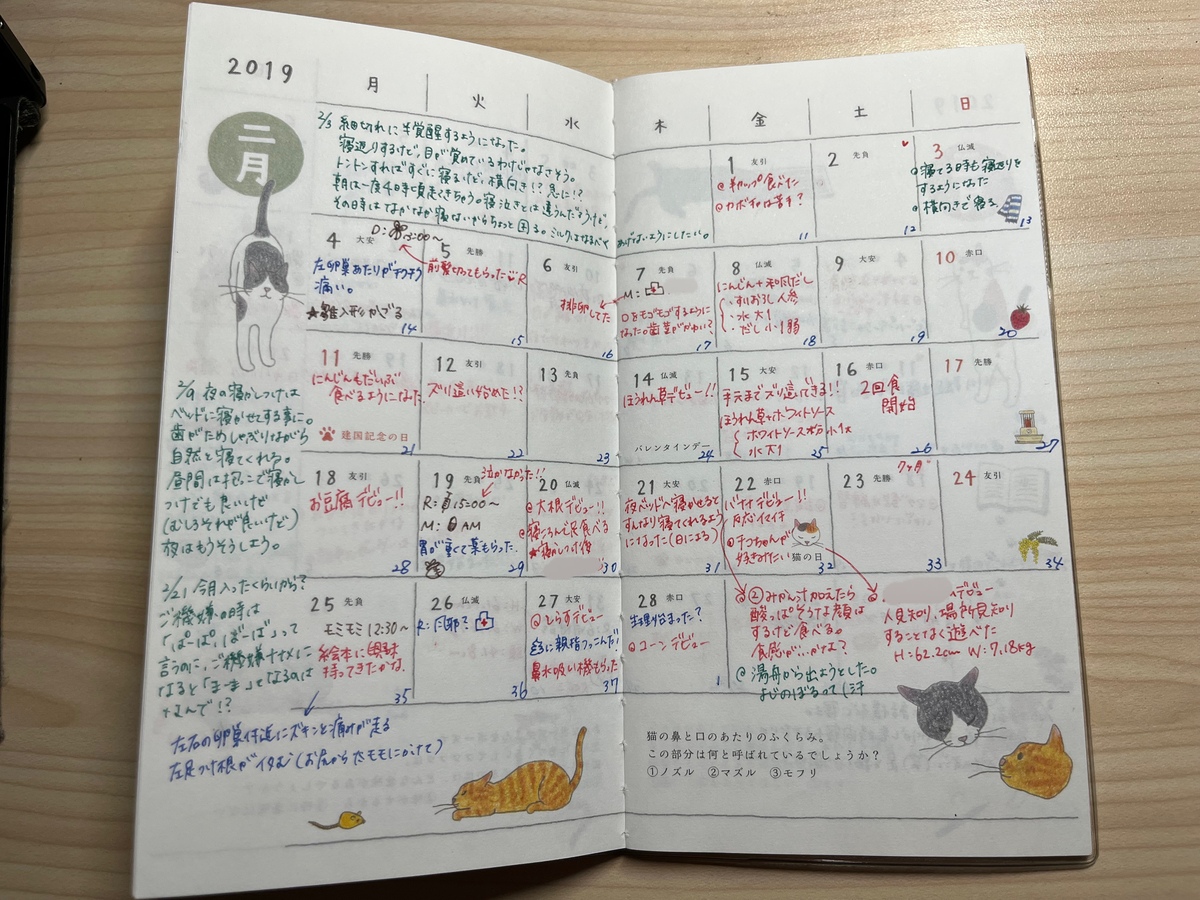 2019
二月
月
火
水
木
金
土
日
2/3 細切れに半覚醒するようになった。
寝返りするけど、目が覚めているわけじゃなさそう。
トントンすればすぐに寝るけど、横向き!?急に!?
朝は一度4時頃起きちゃう。寝泣きとは違うんだろうけど、
その時はなかなか寝ないからちょっと困る。ミルクはなるべく
あげないようにしたい。
1 友引
カボチャは苦手?
11
2 先負
12
3 仏滅
寝てる時も寝返りを
するようになった
横向きで寝る。
13
4 大安
左卵巣あたりがチクチク
痛い。
★雛人形かざる
14
5 先勝
前髪切ってもらった R
15
6 友引
排卵してた
16
7 先負
M:
口をモゴモゴするように
なった。歯茎がかゆい?
17
8 仏滅
にんじん+和風だし
すりおろし人参
水大1
だし小1弱
18
9 大安
19
10 赤口
20
11 先勝
にんじんもだいぶ
食べるようになった
建国記念の日
21
12 友引
ズリ這い始めた!?
22
13 先負
23
14 仏滅
ほうれん草デビュー!!
バレンタインデー
24
15 大安
手元までズリ這いできる!!
ほうれん草+ホワイトソース
ホワイトソース粉小1
水大1
25
16 赤口
2回食
開始
26
17 先勝
27
2/9 夜の寝かしつけは
ベッドに寝かせてする事に。
歯がためしゃぶりながら
自然と寝てくれる。
昼間は抱っこで寝かし
つけでも良いけど
(むしろそれが良いけど)
夜はもうそうしよう。
18 友引
お豆腐デビュー!!
28
19 先負
泣かなかった!!
R: 15:00〜
M: AM
胃が重くて薬もらった
29
20 仏滅
大根デビュー!!
寝ころんで足食べる
★寝かしつけ後
30
21 大安
夜ベッドへ寝かせると
すんなり寝てくれるよう
になった(日による)
31
22 赤口
バナナデビュー!!
反応イマイチ
猫の日
32
23 先勝
7ヶ月
33
24 友引
34
2/21 今月入ったくらいから?
ご機嫌の時は
「ぱーぱ、ばーば」って
言うのに、ご機嫌ナナメに
なると「まーま」となるのは
なんで!?
25 先負
モミモミ 12:30〜
絵本に興味
持ってきたかな。
35
26 仏滅
R: 耳鼻?
36
27 大安
しらすデビュー
鼻水吸い機もらった
37
28 赤口
生理始まった?
コーンデビュー
1
②みかん汁加えたら
酸っぱそうな顔は
するけど食べる。
食感が…かな?
湯舟から出ようとした。
よじのぼるってし汗
デビュー
人見知り、場所見知り
することなく遊べた
H:62.2cm W:7.18kg
左右の卵巣付近にズキンと痛みが走る
左足つけ根がイタむ(お尻から太モモにかけて)
猫の鼻と口のあたりのふくらみ。
この部分は何と呼ばれているでしょうか?
①ノズル ②マズル ③モフリ